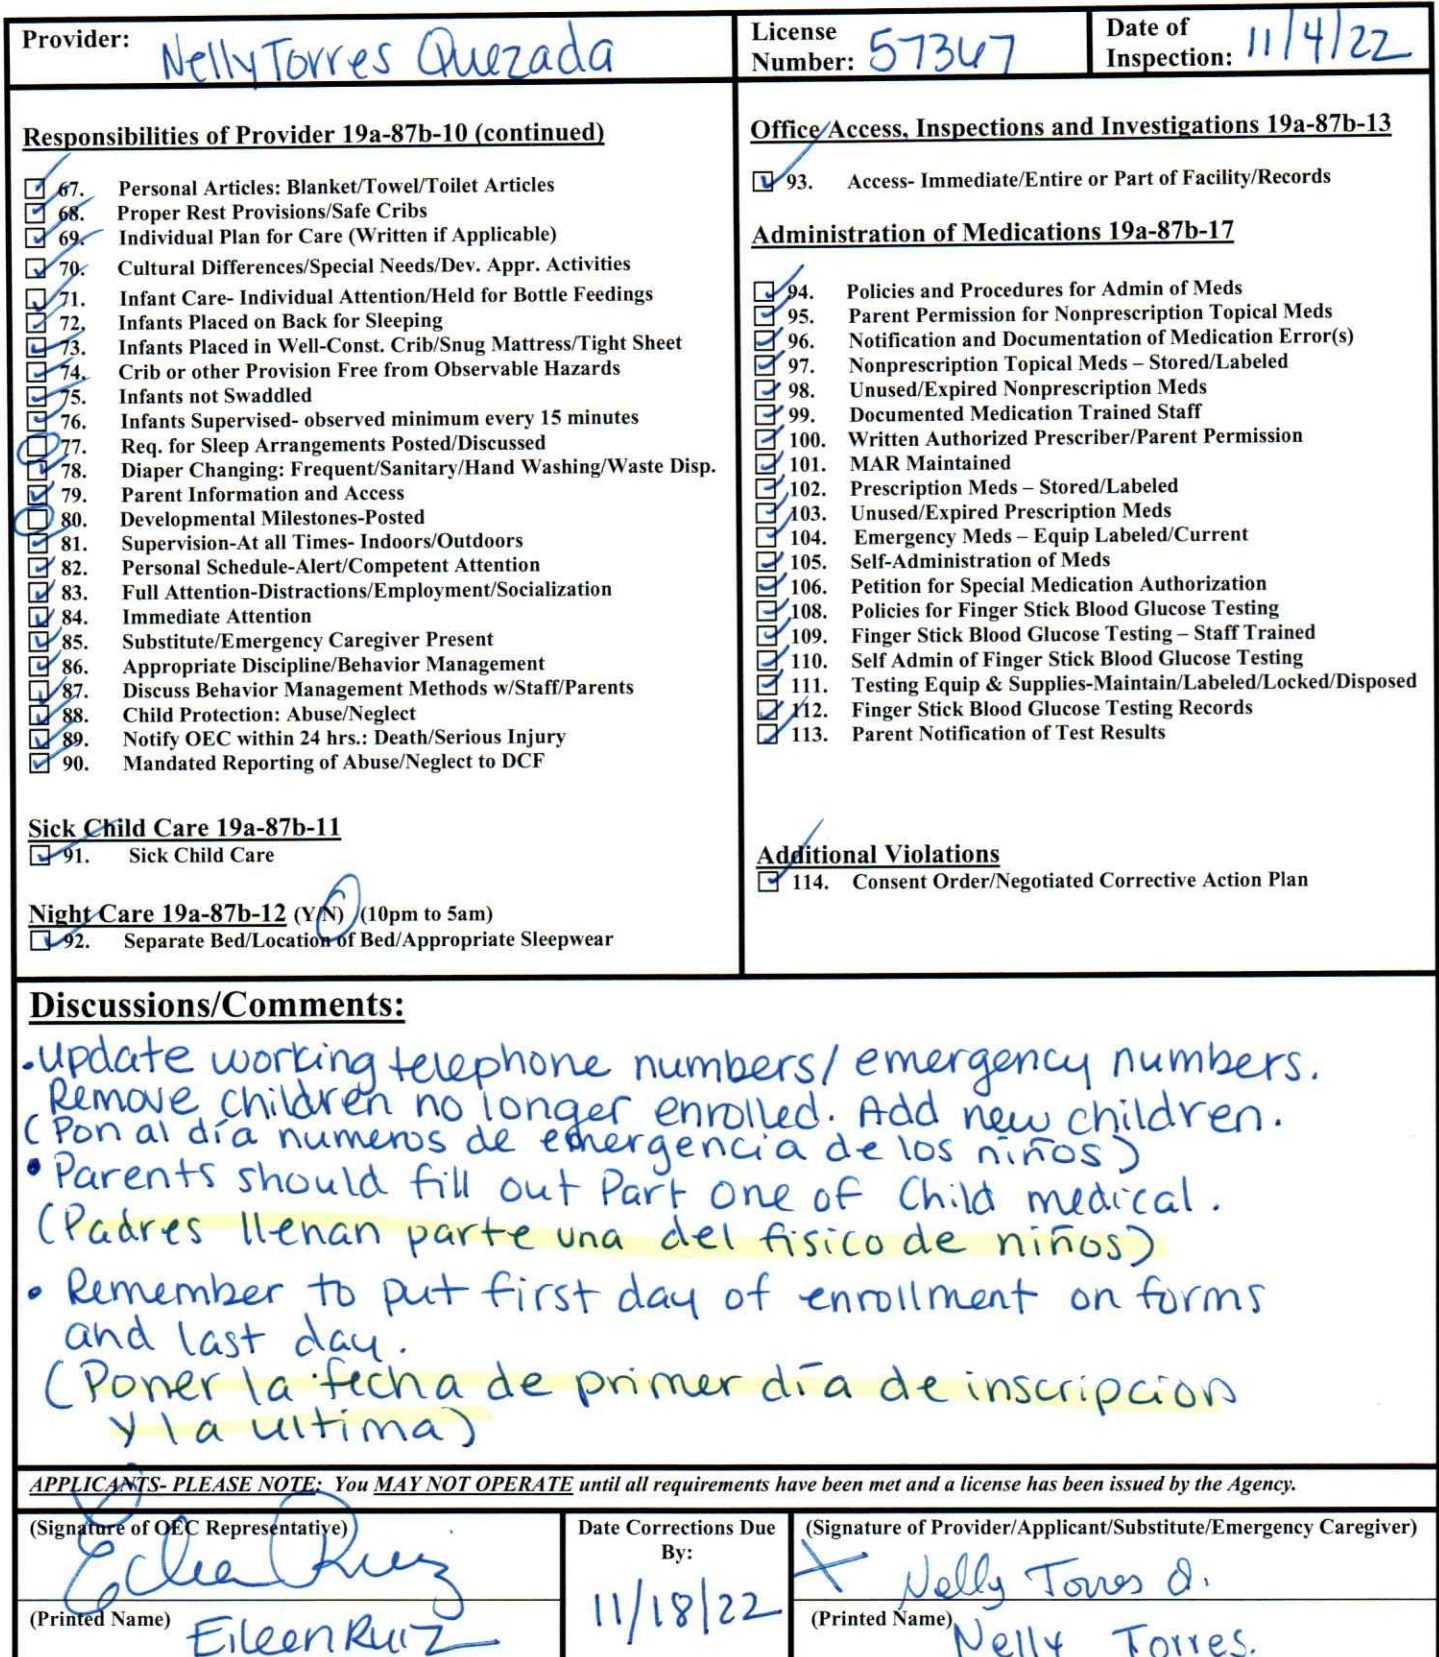 Provider: Nelly Torres Quezada
License Number: 57367
Date of Inspection: 11/4/22
Responsibilities of Provider 19a-87b-10 (continued)
67. Personal Articles: Blanket/Towel/Toilet Articles
68. Proper Rest Provisions/Safe Cribs
69. Individual Plan for Care (Written if Applicable)
70. Cultural Differences/Special Needs/Dev. Appr. Activities
71. Infant Care- Individual Attention/Held for Bottle Feedings
72. Infants Placed on Back for Sleeping
73. Infants Placed in Well-Const. Crib/Snug Mattress/Tight Sheet
74. Crib or other Provision Free from Observable Hazards
75. Infants not Swaddled
76. Infants Supervised- observed minimum every 15 minutes
77. Req. for Sleep Arrangements Posted/Discussed
78. Diaper Changing: Frequent/Sanitary/Hand Washing/Waste Disp.
79. Parent Information and Access
80. Developmental Milestones-Posted
81. Supervision-At all Times- Indoors/Outdoors
82. Personal Schedule-Alert/Competent Attention
83. Full Attention-Distractions/Employment/Socialization
84. Immediate Attention
85. Substitute/Emergency Caregiver Present
86. Appropriate Discipline/Behavior Management
87. Discuss Behavior Management Methods w/Staff/Parents
88. Child Protection: Abuse/Neglect
89. Notify OEC within 24 hrs.: Death/Serious Injury
90. Mandated Reporting of Abuse/Neglect to DCF
Sick Child Care 19a-87b-11
91. Sick Child Care
Night Care 19a-87b-12 (Y/N) (10pm to 5am)
92. Separate Bed/Location of Bed/Appropriate Sleepwear
Office Access, Inspections and Investigations 19a-87b-13
93. Access- Immediate/Entire or Part of Facility/Records
Administration of Medications 19a-87b-17
94. Policies and Procedures for Admin of Meds
95. Parent Permission for Nonprescription Topical Meds
96. Notification and Documentation of Medication Error(s)
97. Nonprescription Topical Meds – Stored/Labeled
98. Unused/Expired Nonprescription Meds
99. Documented Medication Trained Staff
100. Written Authorized Prescriber/Parent Permission
101. MAR Maintained
102. Prescription Meds – Stored/Labeled
103. Unused/Expired Prescription Meds
104. Emergency Meds – Equip Labeled/Current
105. Self-Administration of Meds
106. Petition for Special Medication Authorization
108. Policies for Finger Stick Blood Glucose Testing
109. Finger Stick Blood Glucose Testing – Staff Trained
110. Self Admin of Finger Stick Blood Glucose Testing
111. Testing Equip & Supplies-Maintain/Labeled/Locked/Disposed
112. Finger Stick Blood Glucose Testing Records
113. Parent Notification of Test Results
Additional Violations
114. Consent Order/Negotiated Corrective Action Plan
Discussions/Comments:
• update working telephone numbers/ emergency numbers.
Remove children no longer enrolled. Add new children.
(Pon al día numeros de emergencia de los niños)
• Parents should fill out Part one of Child medical.
(Padres llenan parte una del fisico de niños)
• Remember to put first day of enrollment on forms
and last day.
(Poner la fecha de primer día de inscripcion
y la ultima)
APPLICANTS- PLEASE NOTE: You MAY NOT OPERATE until all requirements have been met and a license has been issued by the Agency.
(Signature of OEC Representative)
Eileen Ruiz
(Printed Name) Eileen Ruiz
Date Corrections Due
By:
11/18/22
(Signature of Provider/Applicant/Substitute/Emergency Caregiver)
X Nelly Torres Q.
(Printed Name) Nelly Torres.